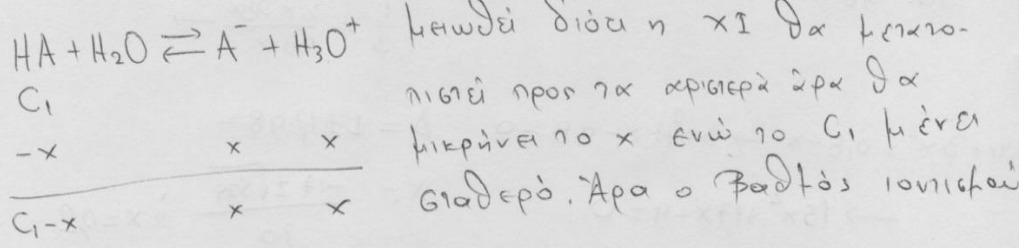 HA + H₂O ⇌ A⁻ + H₃O⁺
C₁
-x x x
C₁-x x x
μειωθεί διότι η χΙ θα μετατο-
πιστεί προς τα αριστερά άρα θα
μικρήνει το x ενώ το C₁ μένει
σταθερό. Άρα ο βαθμός ιοντισμού